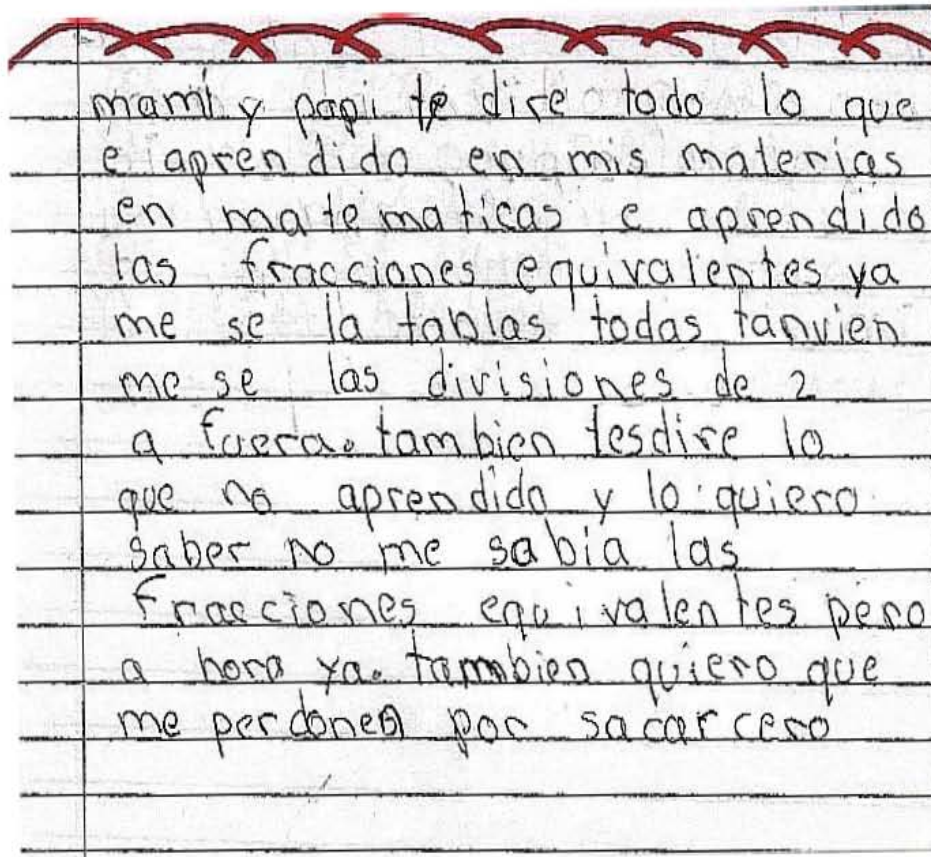 mami y papi te dire todo lo que
e aprendido en mis materias
en matematicas e aprendido
las fracciones equivalentes ya
me se la tablas todas tanvien
me se las divisiones de 2
a fuera. tambien tesdire lo
que no aprendido y lo quiero
saber no me sabia las
fracciones equivalentes pero
a hora ya. tambien quiero que
me perdonen por sacar cero